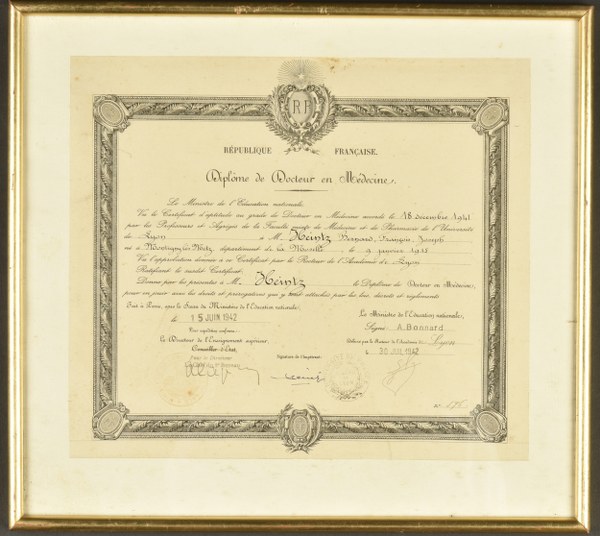 RF
RÉPUBLIQUE FRANÇAISE.
Diplôme de Docteur en Médecine.
Le Ministre de l'Éducation nationale,
Vu le Certificat d'aptitude au grade de Docteur en Médecine accordé le 18 décembre 1941
par les Professeurs et Agrégés de la Faculté mixte de Médecine et de Pharmacie de l'Université
de Lyon à M. Heintz Bernard, François, Joseph
né à Montigny les Metz, département de La Moselle, le 9 janvier
Vu l'approbation donnée à ce Certificat par le Recteur de l'Académie de Lyon
Ratifiant le susdit Certificat,
Donne par les présentes à M. Heintz le Diplôme de Docteur en Médecine,
pour en jouir avec les droits et prérogatives qui y sont attachés par les lois, décrets et règlements
Fait à Paris, sous le Sceau du Ministère de l'Éducation nationale,
le 15 JUIN 1942
Le Ministre de l'Éducation nationale,
Signé: A. Bonnard
Pour expédition conforme:
Le Directeur de l'Enseignement supérieur,
Conseiller d'État,
Signature de l'impétrant:
Délivré par le Recteur de l'Académie de Lyon
le 30 JUIL 1942
N°